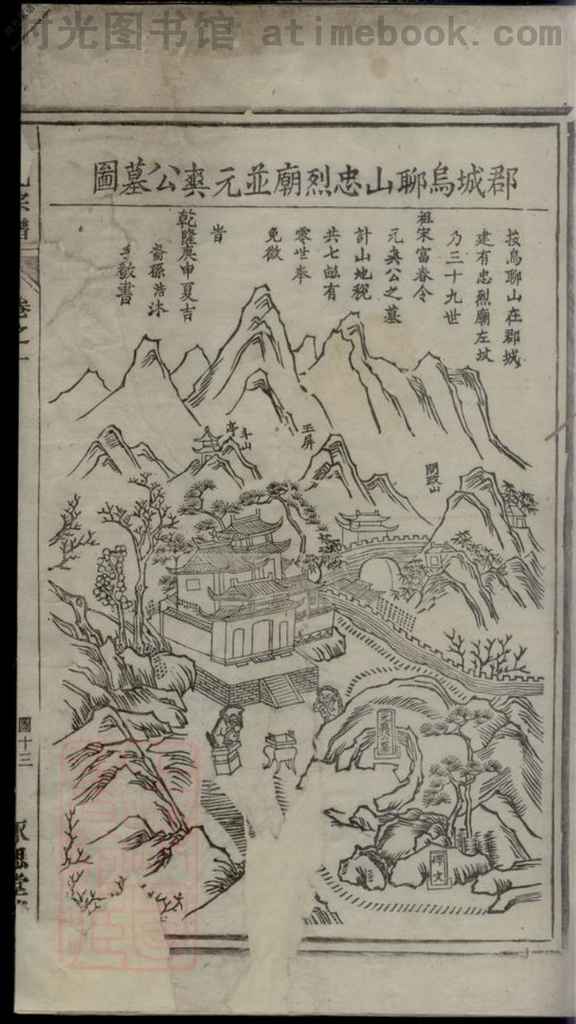 时光图书馆 atimebook.com
郡城烏聊山忠烈廟並元奭公墓圖
按烏聊山在郡城
建有忠烈廟左坟
乃三十九世
祖宋富春令
元奭公之墓
計山地稅
共七畝有
零世奉
免徵
旨
乾隆庚申夏吉
裔孫浩沐
手敬書
卷之一
斗山
亭
玉屏
開政山
圖十三